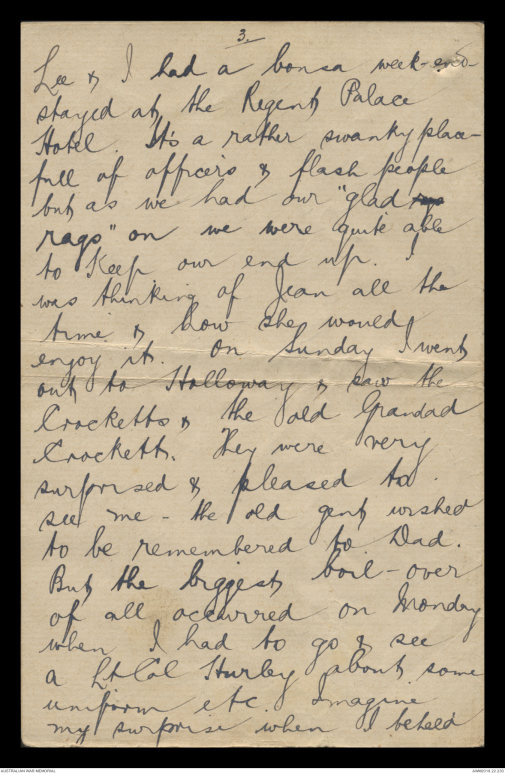 3.
Lee & I had a bonsa week-end-
stayed at the Regent Palace
Hotel. It's a rather swanky place -
full of officers & flash people
but as we had our "glad
rags" on we were quite able
to keep our end up. I
was thinking of Jean all the
time & how she would
enjoy it. On Sunday I went
out to Holloway & saw the
Crocketts & the old Grandad
Crockett. They were very
surprised & pleased to
see me - the old gent wished
to be remembered to Dad.
But the biggest boil-over
of all occurred on Monday
when I had to go & see
a Lt Col Hurley about some
uniform etc. Imagine
my surprise when I beheld
AUSTRALIAN WAR MEMORIAL